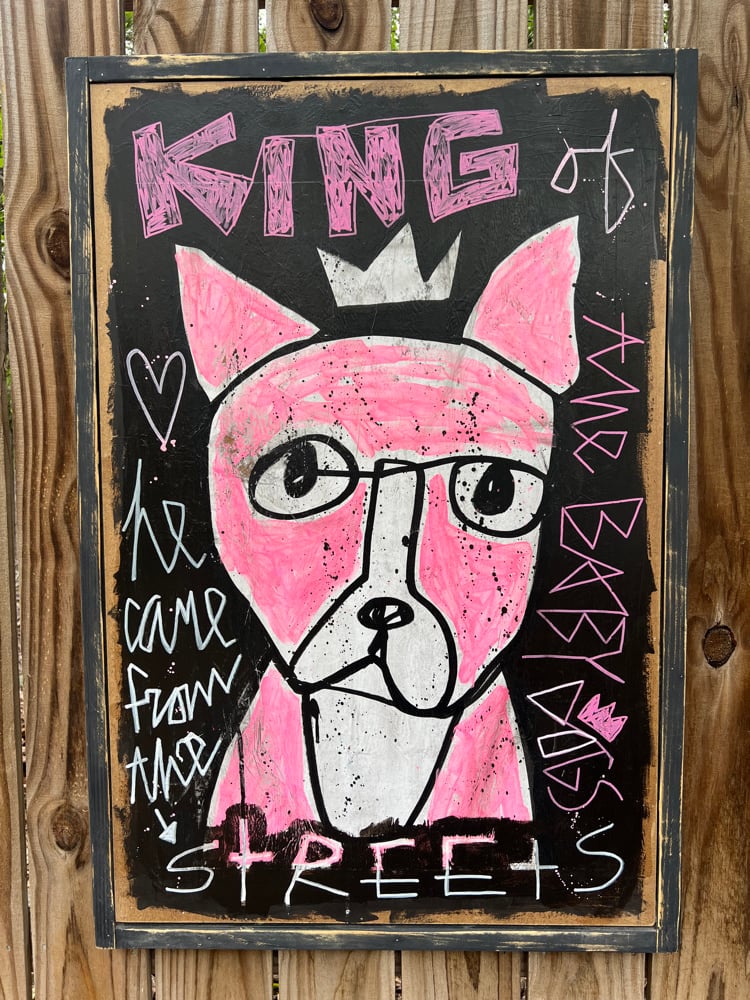 KING of
the BABY DOGS
he
came
from
the
STREETS